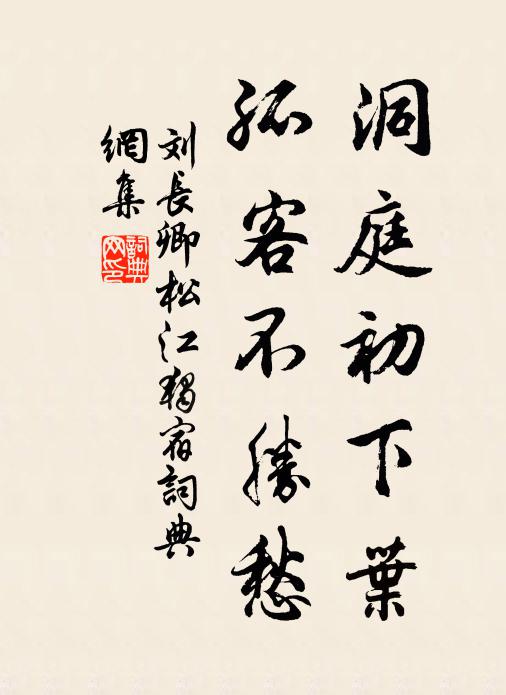 洞庭初下葉
孤客不勝愁
刘長卿松江獨宿詞典
網集
詞典網印